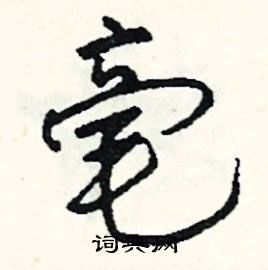 毫
词典网